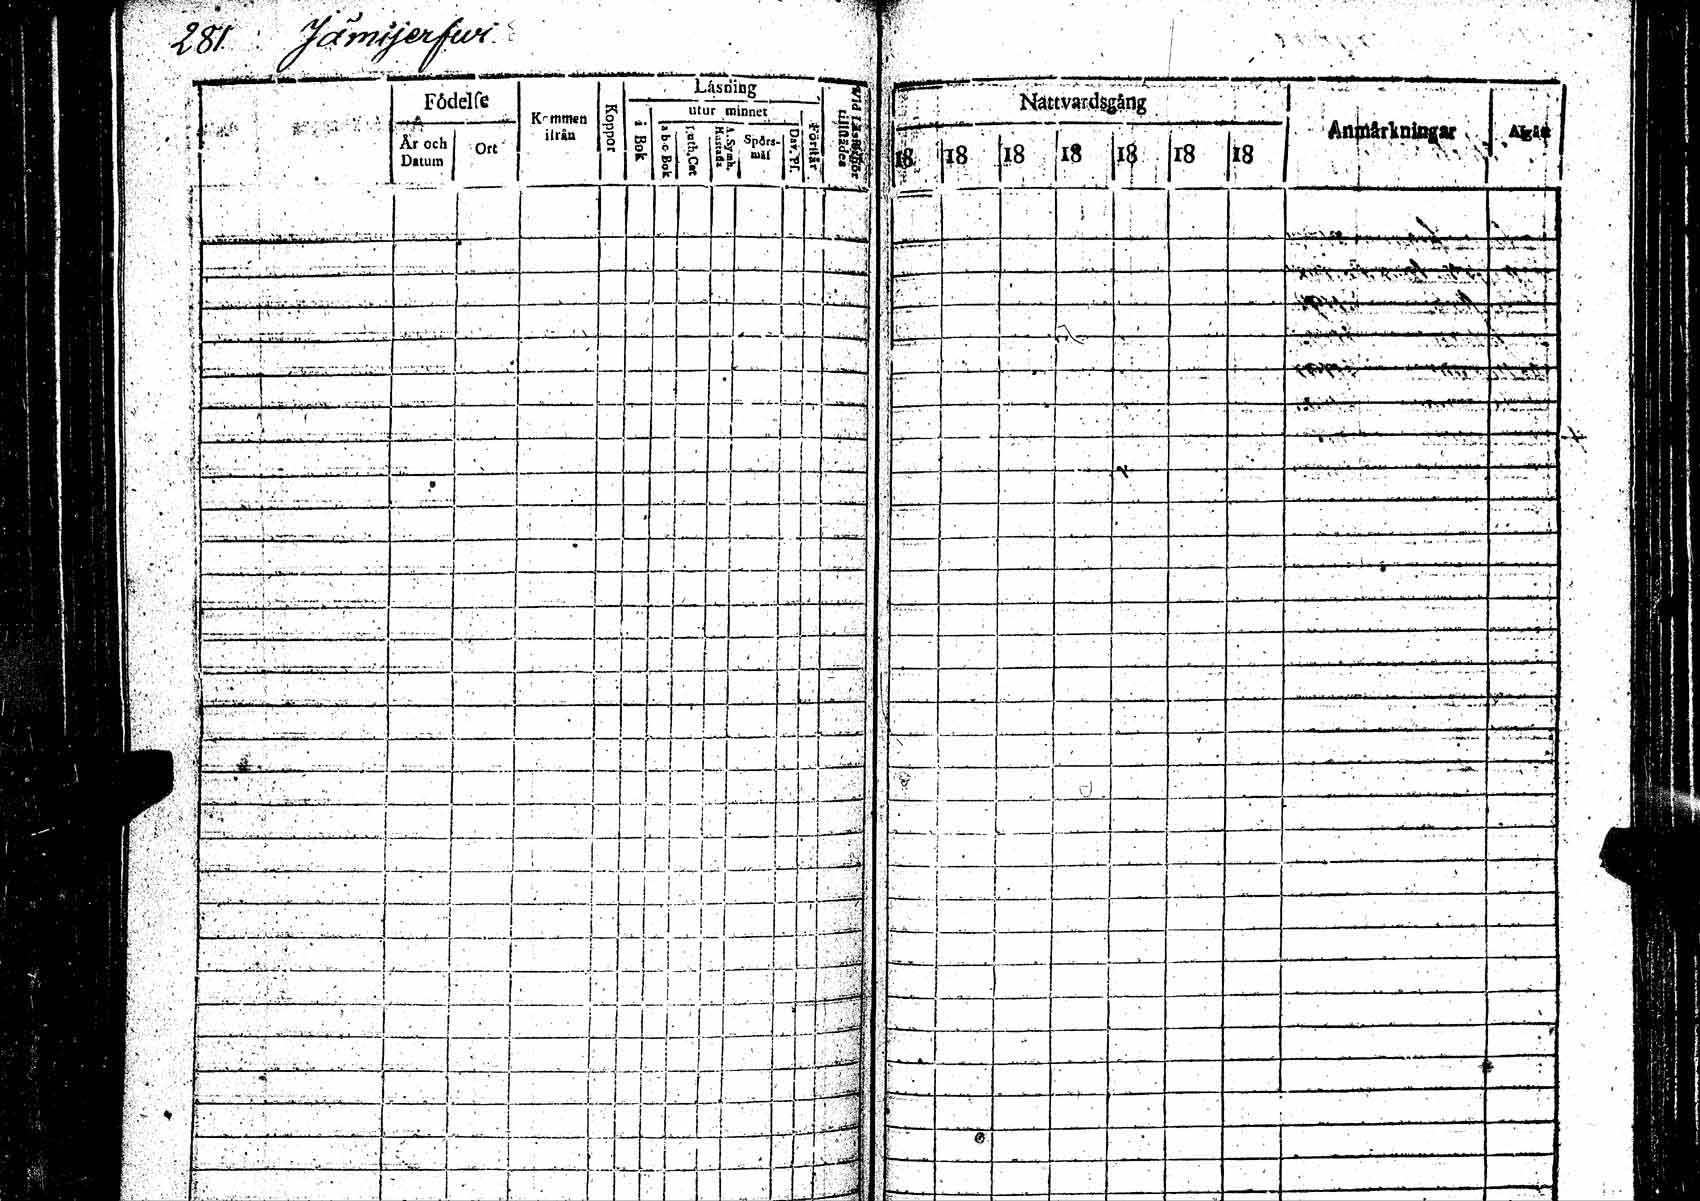 281. Jämijerfwi
Födelse
År och Datum
Ort
Kommen ifrån
Koppor
Läsning
i Bok
utur minnet
a b c Bok
Luth. Cat
A. Symb. Hustafla
Spörs-mål
Dav. Ps.
Förstår
Nattvardsgång
18 18 18 18 18 18 18
Anmärkningar
Afgått